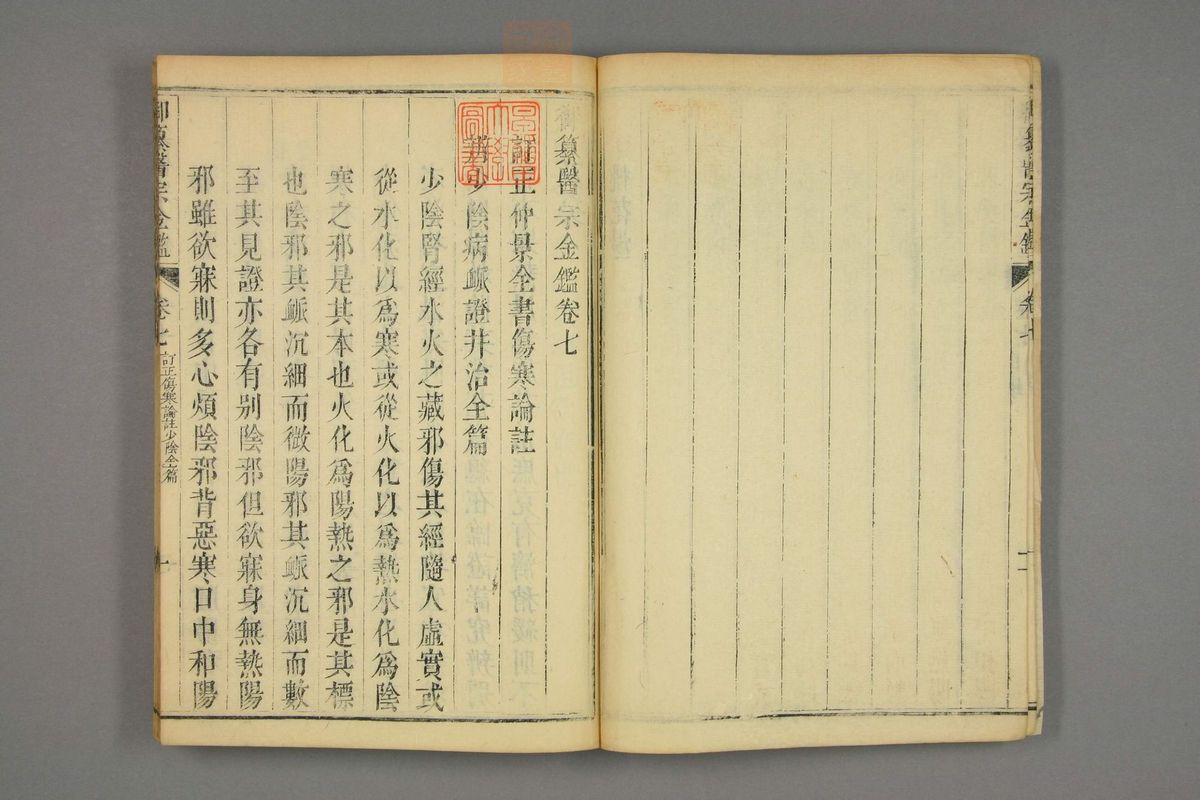 御纂醫宗金鑑
卷七
御纂醫宗金鑑卷七
訂正仲景全書傷寒論註
辨少陰病脈證并治全篇
少陰腎經水火之藏邪傷其經隨人虛實或
從水化以爲寒或從火化以爲熱水化爲陰
寒之邪是其本也火化爲陽熱之邪是其標
也陰邪其脈沉細而微陽邪其脈沉細而數
至其見證亦各有別陰邪但欲寐身無熱陽
邪雖欲寐則多心煩陰邪背惡寒口中和陽
御纂醫宗金鑑
卷七
訂正傷寒論註少陰全篇
一